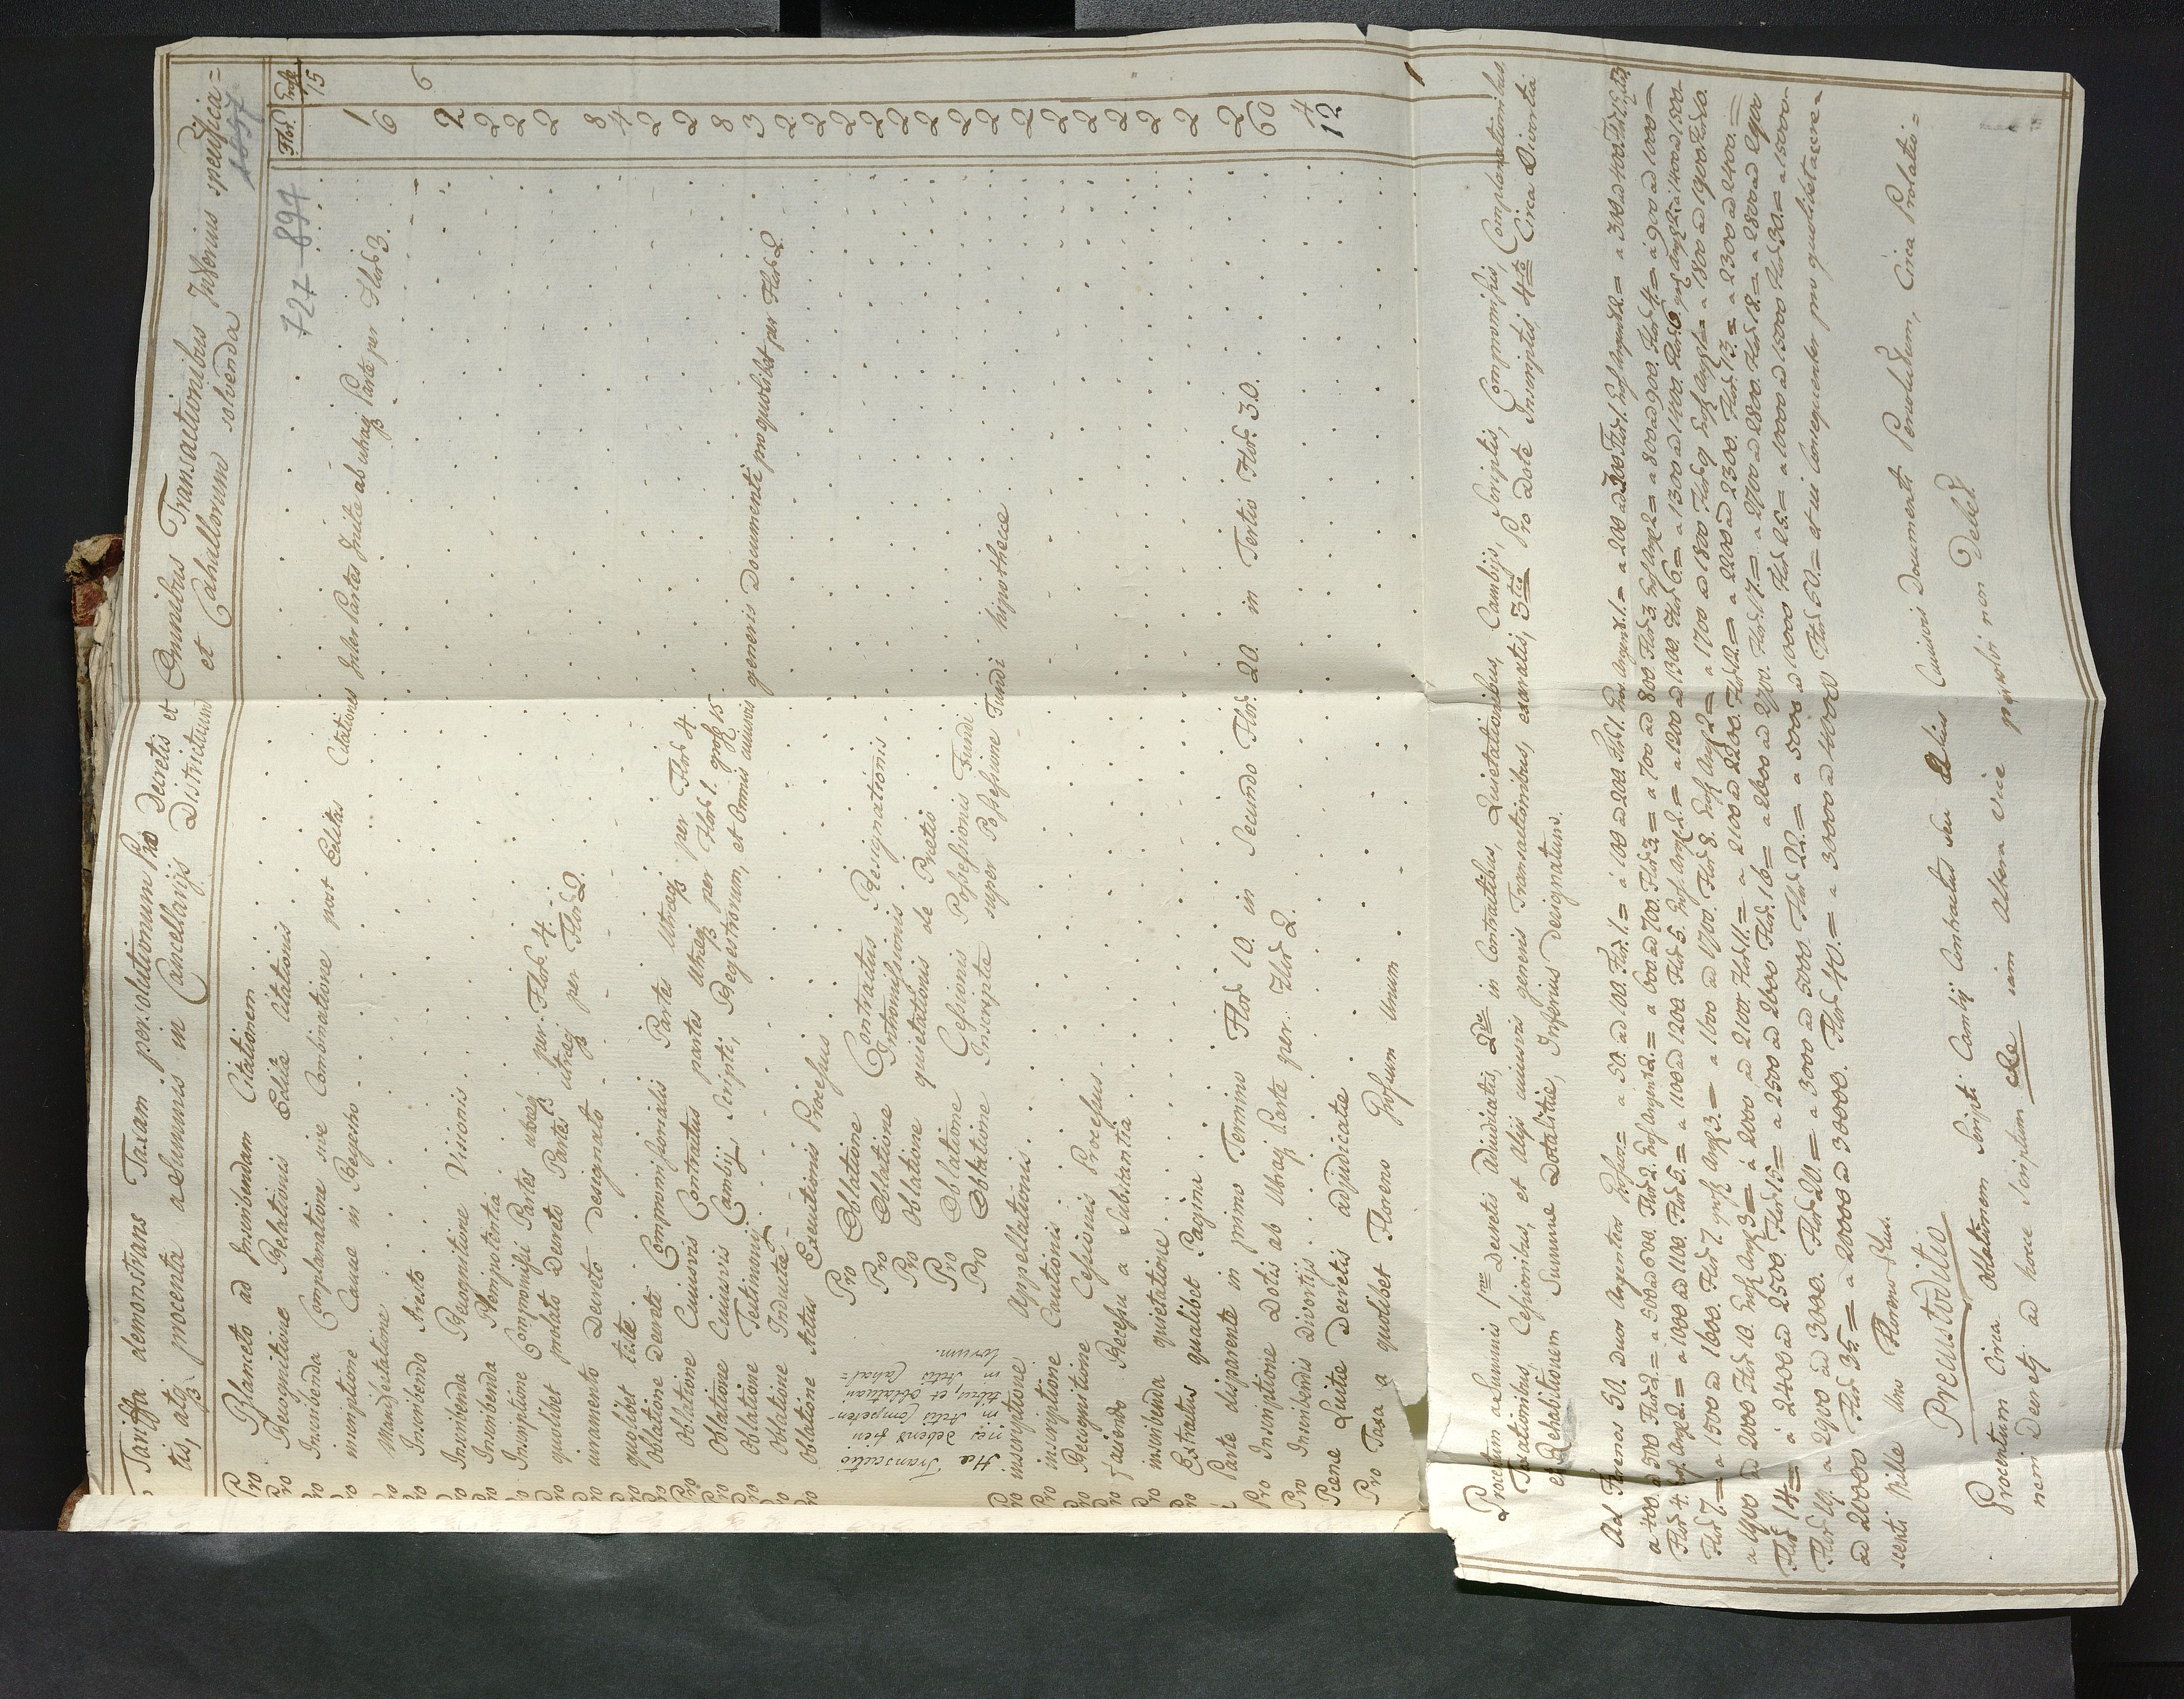 Tariffa demonstrans Taxam persolutionum Pro Decretis et Omnibus Transactionibus Inferius specifica=
tis, atq procenta desummis in Cancellarijs Districtuum et Cahallorum solvenda
1897
727-897
Flor. Gross
Pro Blanceto ad Inscribendam Citationem 15
Pro Recognitione Relationis Edita Citationis 1
Pro Inscribenda Complanatione sive Combinatione post Editas Citationes Inter Partes Inita ab utraq Parte per Flor 3. 6
inscriptione Causa in Regestro 6
Manifestatione 2
Pro Inscribendo Aresto 2
Pro Inscribenda Recognitione Visionis 2
Pro Inscribenda Plenipotentia 2
Pro Inscriptione Compromissi Partes utraq per Flor. 4. 8
quolibet prolato Decreto Partes utraq per Flor 2. 4
Pro iuramento Decreto Designato 2
quolibet teste 2
Pro Oblatione Decreti Compromissorialis Partes Utraq per Flor 4. 8
Pro Oblatione Cuiusvis Contractus partes Utraq per Flor 1. gross 15. 3
Pro Oblatione Cuiusvis Cambij Scripti, Regestrorum, et Omnis cuiusvis generis Documenti pro quolibet per Flor 2. 2
Pro Oblatione Testimonij 2
Pro Oblatione Inducta 2
Pro Oblatione Actus Executionis Processus 2
Hae Transactio
nes debent fieri
in Actis Competen-
tibus, et Oblatium
in Actis Cahal=
lorum.
Pro Oblatione Contractus Resignationis 2
Pro Oblatione Intromissionis 2
Pro Oblatione quietationis de Pretio 2
Pro Oblatione Cessionis Possessionis Fundi 2
Pro Oblatione Inscripta super Possessione Fundi hipothecae 2
Pro inscriptione Appellationis 2
Pro inscriptione Cautionis 2
Pro Recognitione Cessionis Processus 2
Pro faciendo Recessu a Substantia 2
Pro inscribenda quietatione 2
Pro Extractus qualibet Pagina 2
Parte disparente in primo Termino Flor 10. in Secundo Flor. 20. in Tertio Flor. 30. 60
Pro Inscriptione Dotis ab Utraq Parte per Flor 2. 4
Pro Inscribendis Divortijs 12
Poene Luita Decretis adjudicatae
Pro Taxa a quolibet Floreno Grossum Unum 1
Procentum a Summis 1mo Decretis Adiudicatis, 2do in Contractibus, Quietationibus, Cambijs, Scriptis, Compromissis, Complanationibus
Taxationibus, Cessionibus, et Alijs cuiusvis generis Transactionibus, exaratis, 3tio Pro Dote Inscriptis 4to Circa Divortia
ex Rehabitionem Summae Dotalitiae, Inferius Designatum.
Ad Florenos 50. Duos Argenteos Grossos = a 50. ad 100. Flor. 1. = a 100 ad 200 Flor 1. Gros Argent. 1. = a 200 ad 300 Flor 1. Gross Argent 2 = a 300 ad 400 Flor
a 400. ad 500 Flor 2. = a 500 ad 600. Flor 2. Gros Argent 2. = a 600 ad 700. Flor 3. = a 700 ad 800. Flor 3. Gros Arg 2 = a 800 ad 900. Flor 4. = a 900 ad 1000 =
Flor 4. gros. Arg 2. = a 1000 ad 1100. Flor 5. = a 1100 ad 1200. Flor 5. Gros. Arg 2. = a 1200 ad 1300. Flor 6. = a 1300 ad 1400. Flor. 6. gros Arg 2. a 1400 ad 1500.
Flor 7. = a 1500 ad 1600. Flor 7. gros Arg 3. = a 1600 ad 1700. Flor 8. Gros Arg 2 = a 1700 ad 1800. Flor 9 Gros Arg 1 = a 1800 ad 1900 Flor 10.
a 1900 ad 2000 Flor 10. Gros Arg 3 = a 2000 ad 2100. Flor 11. = a 2100 ad 2200. Flor 12. = a 2200 ad 2300. Flor 13. = a 2300 ad 2400. =
Flor 14. = a 2400 ad 2500. Flor 15. = a 2500 ad 2600 Flor. 16 = a 2600 ad 2700. Flor. 17. = a 2700 ad 2800. Flor 18. = a 2800 ad 2900
Flor 19. a 2900 ad 3000. Flor 20. = a 3000 ad 5000. Flor 22. = a 5000 ad 10000 Flor 25. = a 10000 ad 15000 Flor 30. = a 15000.
ad 20000 Flor 35. = a 20000 ad 30000. Flor 40. = a 30000 ad 40000 Flor 50. = et ui consequenter pro quolibet
centi Mille Uno Floreno Plus.
Precustoditio
Procentum Circa Oblationem Scripti Cambij Contractus seu Alius Cuiusvis Documenti Persolutum, Circa Prolatio=
nem Decreti ad hoce Scriptum de iam Altera vice persolvi non Debet